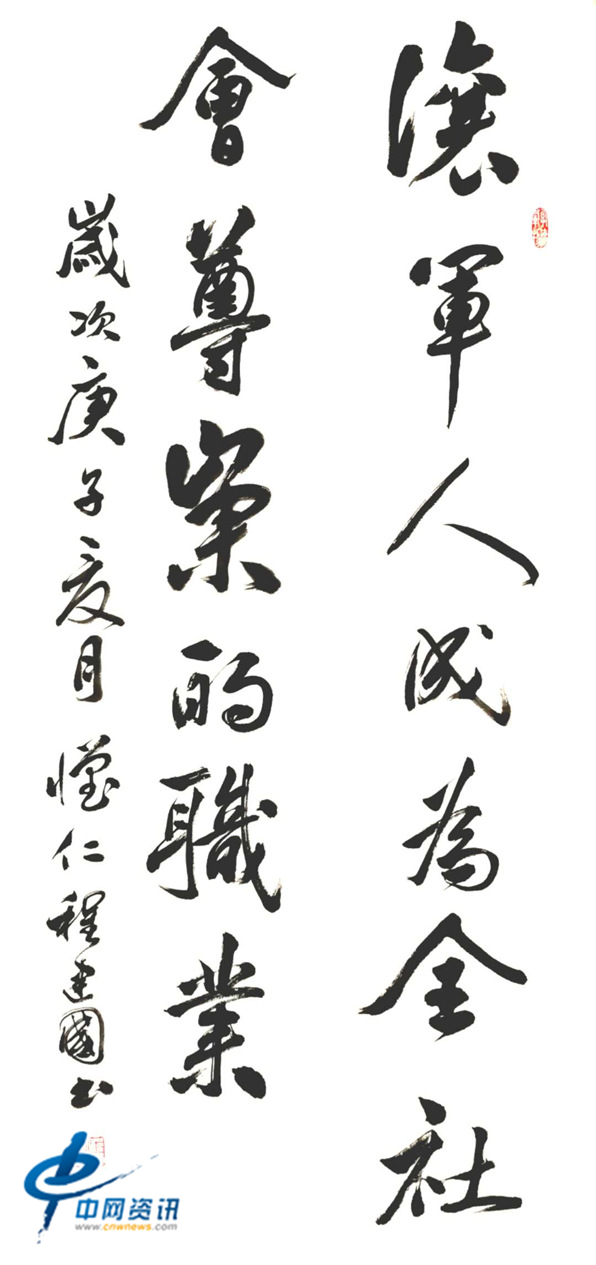 讓軍人成為全社
會尊崇的職業
歲次庚子夏月 懷仁程建國书
中网资讯
www.cnwnews.com